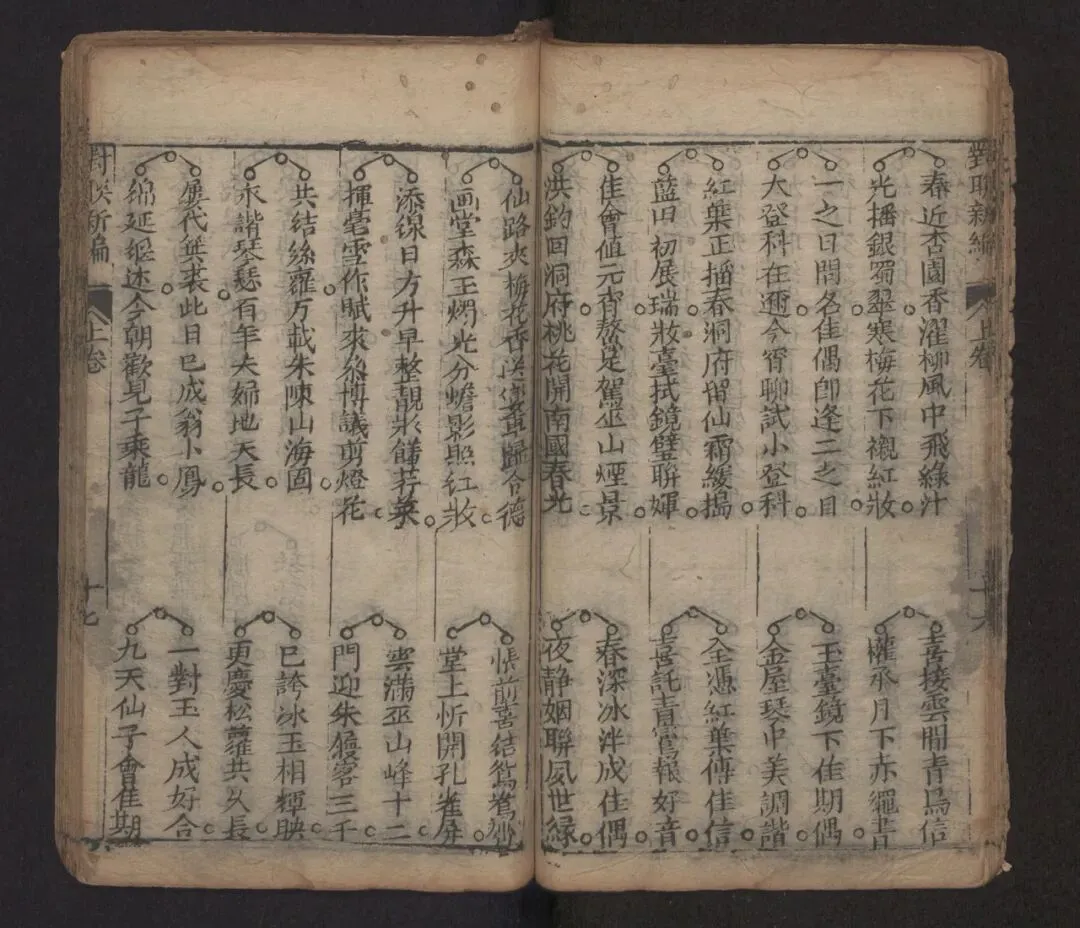 對聯新編
上卷
春近杏園香濯柳風中飛綠汁
光播銀蜀翠寒梅花下襯紅妝
一之日問名佳偶卽逢二之日
大登科在邇今宵聊試小登科
紅葉正播春洞府留仙霜緩搗
藍田初展瑞妝臺拭鏡璧聯輝
佳會値元宵鰲足駕巫山煙景
洪鈞回洞府桃花開南國春光
喜接雲間靑鳥信
權丞月下赤繩書
玉臺鏡下佳期偶
金屋琴中美調諧
全憑紅葉傳佳信
喜託靑鸞報好音
春深冰泮成佳偶
夜静姻聯夙世緣
仙路夾梅花香 歸合德
画堂森玉燭光分蟾影照红妝
添線日方升早整靚妝饈荇菜
揮毫雪作賦來 博議剪燈花
共结絲蘿万载朱陳山海固
永諧琴瑟百年夫婦地天長
屢代箕裘此日已成翁卜鳳
綿延 述今朝歡見子乘龍
悵前喜结鴛鴦
堂上忻開孔雀屏
雲滿巫山峰十二
門迎朱履客三千
已誇冰玉相輝映
更慶松蘿共久長
一對玉人成好合
九天仙子會佳期
對聯新編
上卷
十七